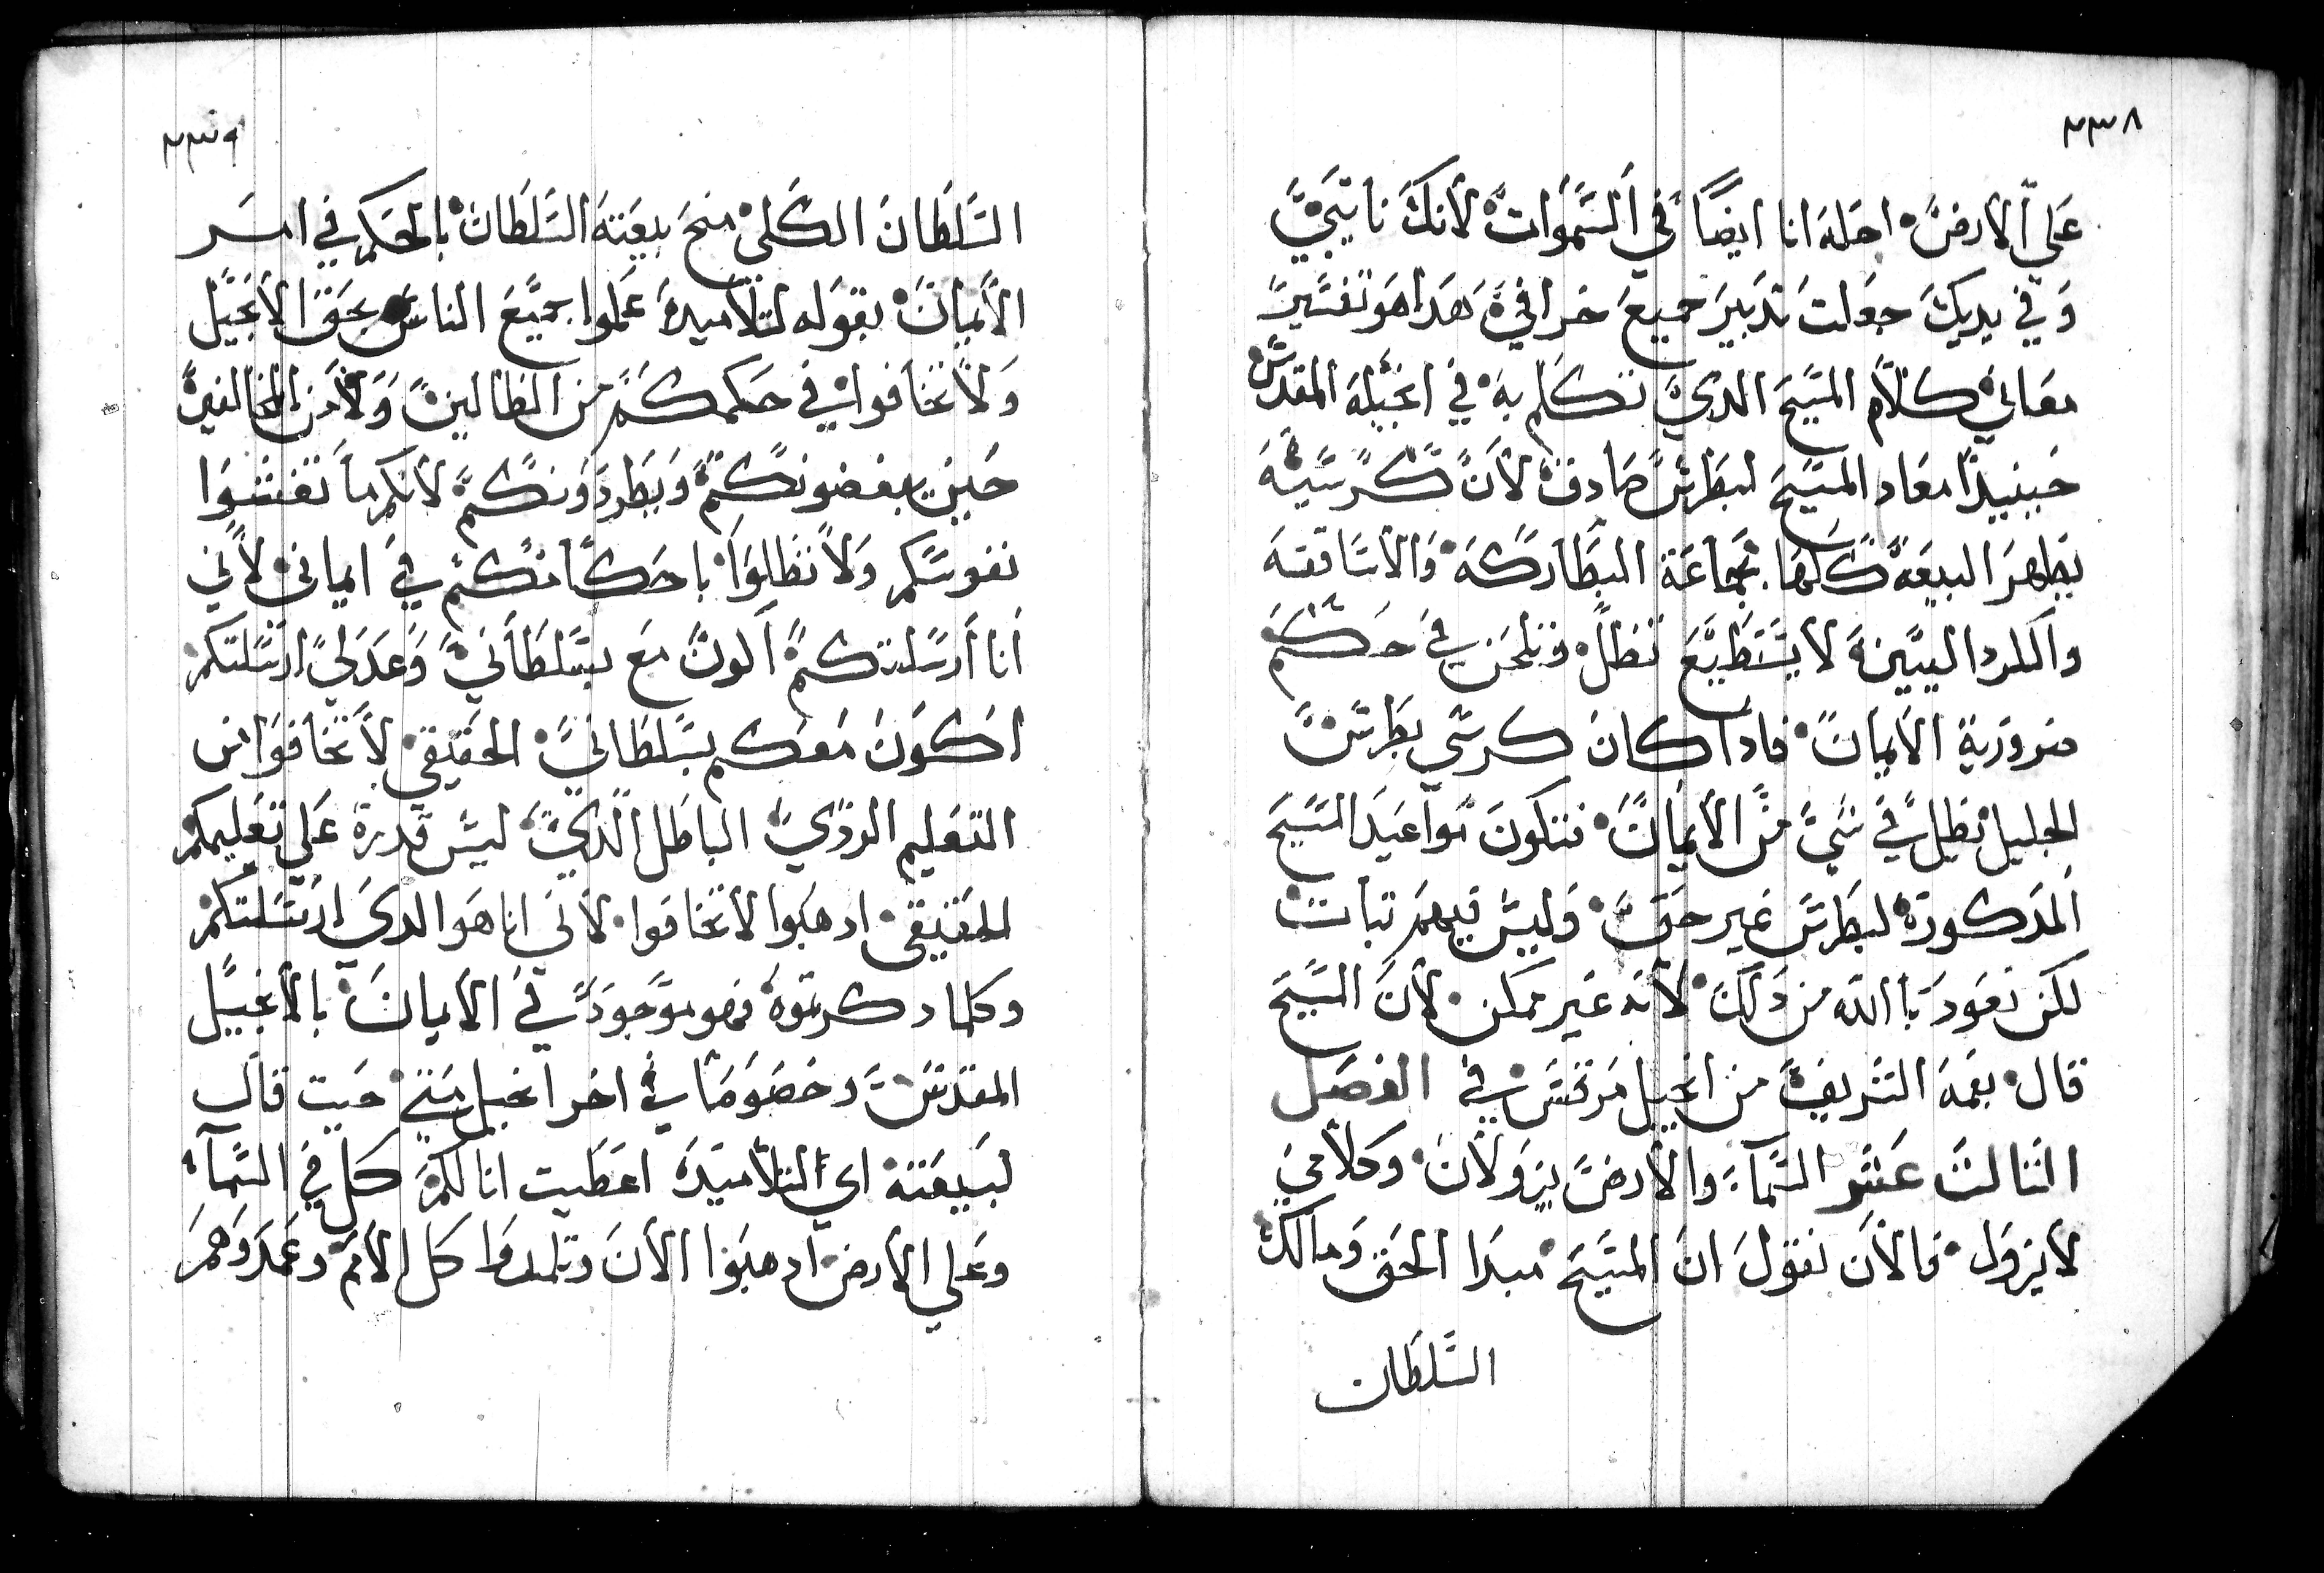 ٢٣٨
علي الارض احله انا ايضًا في السموات لانك نايبي
وفي يديك جعلت تدبير جميع خرافي هدا هو تفسير
معاني كلام المسيح الدي تكلم به في انجيله المقدس
حينيدًا معاد المسيح لبطرس صادق لان كرسيه
يظهر البيعه كلها بجماعة البطاركه والاساقفه
والكردالييين لا يستطيع تظل وتلحن في حكم
ضرورية الايمان فادا كان كرسي بطرس
الجليل يظل في شي من الايمان فتكون مواعيد المسيح
المدكورة لبطرس غير حق وليس فيهم تبات
لكن نعود باالله من دلك لانه غير ممكن لان المسيح
قال بفمه الشريف من انجيل مرقس في الفصل
الثالث عشر السماء والارض يزولان وكلامي
لا يزول فالان نقول ان المسيح مبدا الحق ومالك
السلطان
٢٣٩
السلطان الكلي منح بيعته السلطان بالحكم في امر
الايمان بقوله لتلاميده علموا جميع الناس بحق الانجيل
ولا تخافوا في حكمكم من الظالين ولا من المخالفين
حين يبغضونكم ويطردونكم لانكم ما تغشوا
نفوسكم ولا تظلوا باحكامكم في ايماني لاني
انا أرسلتكم اكون مع بسلطاني وعدلي ارسلتكم
اكون معكم بسلطاني الحقيقي لا تخافوا من
التعليم الردي الباطل الدي ليس قدرة علي تعليمكم
الحقيقي ادهبوا لا تخافوا لاني انا هو الدي ارسلتكم
وكلما دكرتوه فهو موجود في الايمان بالانجيل
المقدس وخصوصًا في اخر انجيل متي حيت قال
لبيعته اي التلاميد اعطيت انا لكم كل في السماء
وعلي الارض ادهبوا الان وتلمدوا كل الامم وعمدوهم